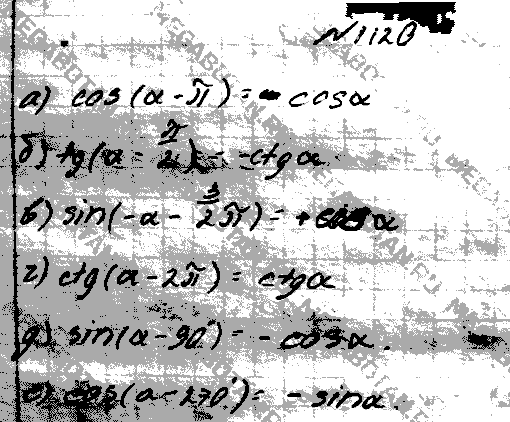 N 1120
а) cos(α - π) = - cosα
б) tg(α - π/2) = -ctgα
в) sin(-α - 3/2π) = + cosα
г) ctg(α - 2π) = ctgα
д) sin(α - 90°) = - cosα.
е) cos(α - 270°) = - sinα.